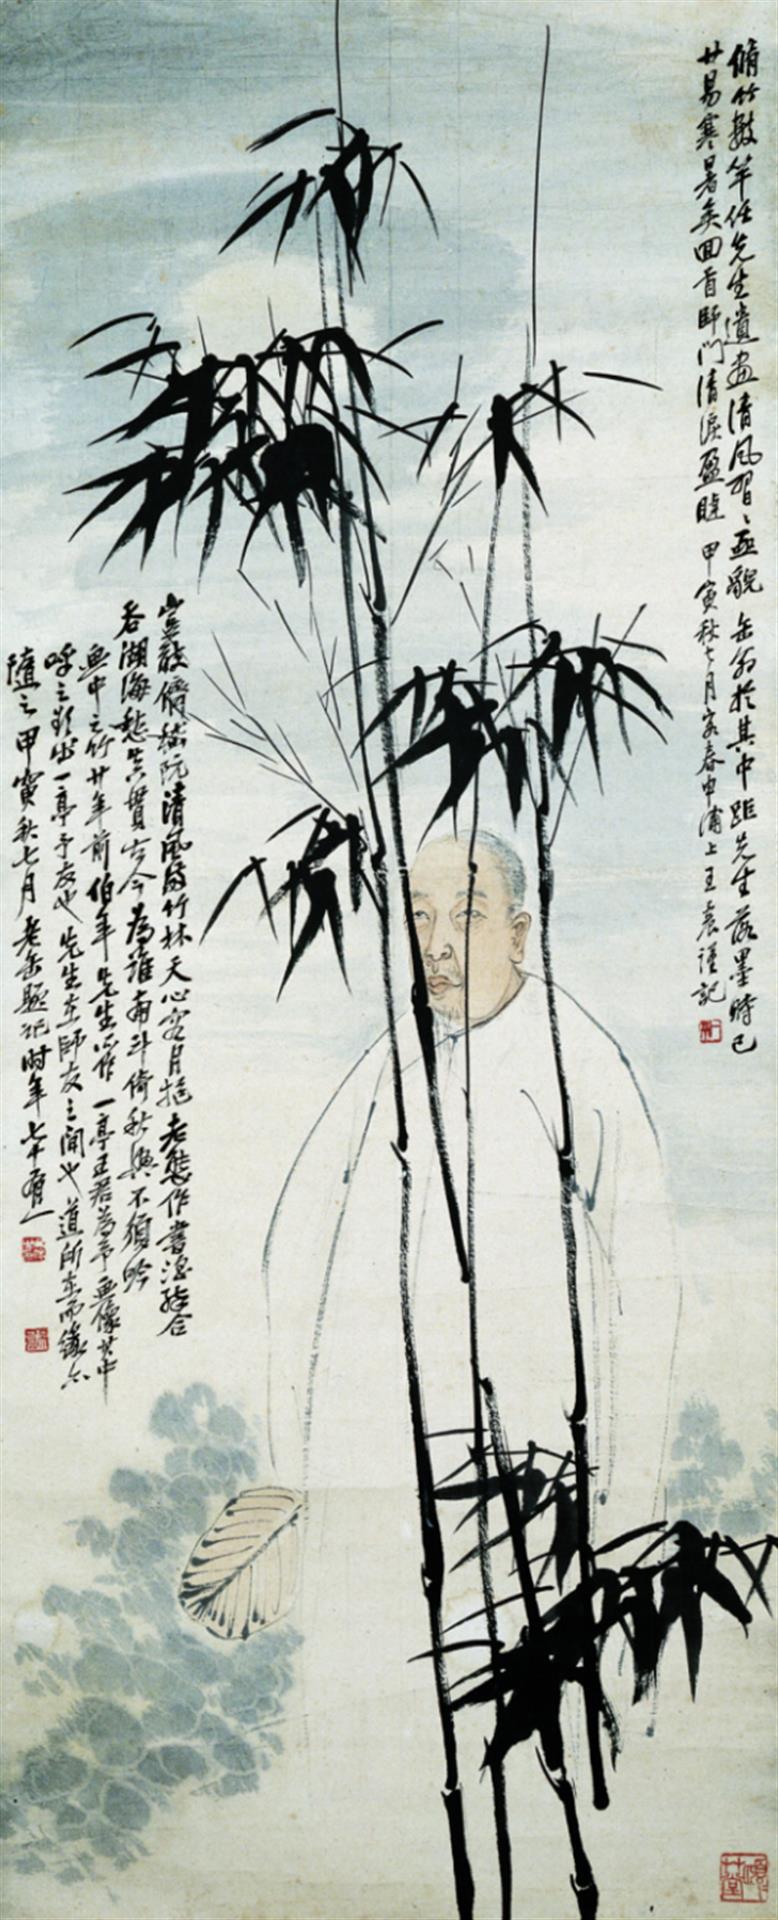 修竹數竿任先生遺畫清風習習亟貌缶翁於其中距先生落墨時已
廿易寒暑矣回首師門清淚盈睫 甲寅秋七月客春申浦上王震謹記
豈敢儕嵇阮清風滿竹林天心容月抱老態作書淫合
吞湖海愁真貫古今為誰南斗倚秋興不須吟
畫中之竹廿年前伯年先生所作一亭王君為予畫像其中
呼之欲出一亭予友也先生在師友之間也道所在而緣亦
隨之甲寅秋七月老缶題記時年七十有一